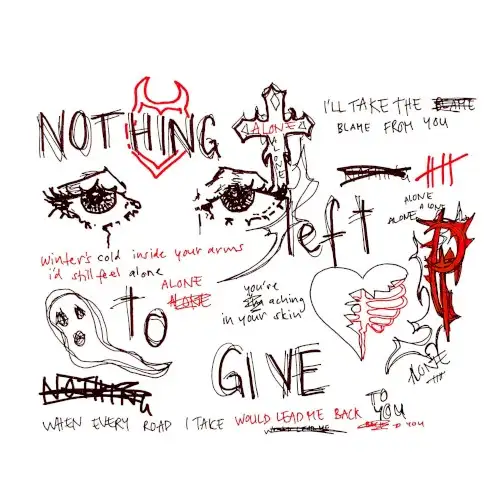 NOTHING
ALONE
ALONE
I'LL TAKE THE BLAME
BLAME FROM YOU
NOTHING
ALONE
ALONE
ALONE
left
winter's cold inside your arms
i'd still feel alone
ALONE
ALONE
you're
aching
in your skin
to
GIVE
ALONE
NOTHING
WHEN EVERY ROAD I TAKE WOULD LEAD ME BACK TO YOU
WOULD LEAD ME
BACK TO YOU